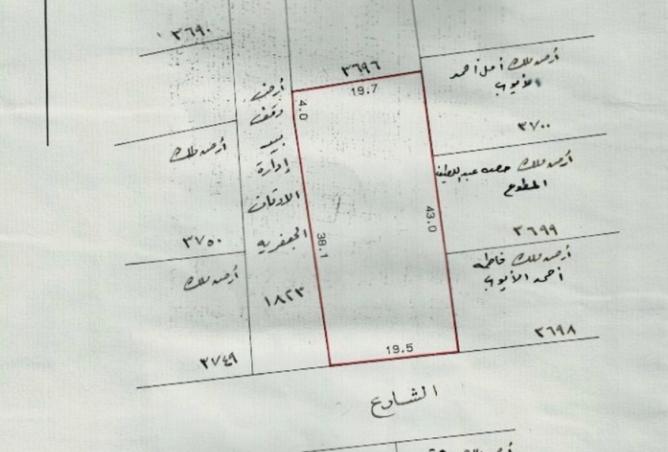 ٣٦٩٠
٣٦٩٦
19.7
4.0
38.1
43.0
19.5
أرض ملك أمل أحمد
الأيوب
٣٧٠٠
أرض ملك حصه عبداللطيف
المطوع
٣٦٩٩
أرض ملك فاطمه
أحمد الأيوب
٣٦٩٨
أرض
وقف
بيد
إدارة
الاوقاف
الجعفريه
١٨٢٣
أرض ملك
٣٧٥٠
أرض ملك
٣٧٤٩
الشارع